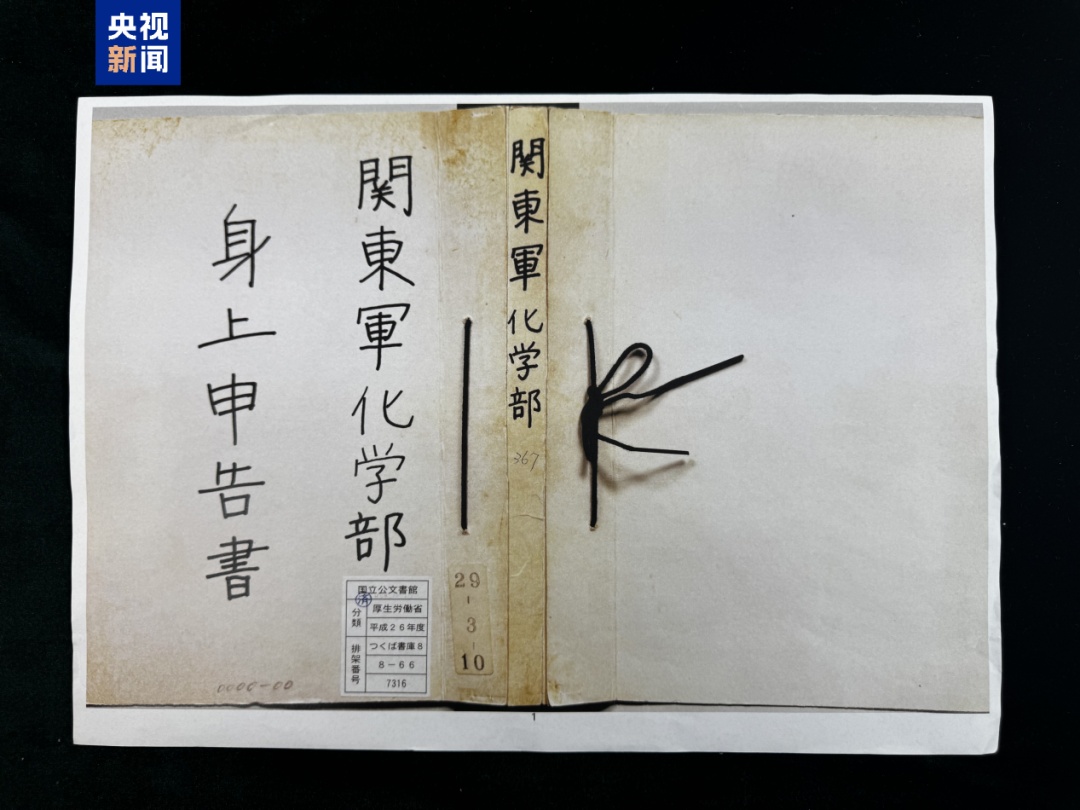 央视
新闻
関東軍化学部
身上申告書
関東軍化学部
367
29
-
3
-
10
国立公文書館
分類
済
厚生労働省
平成26年度
排架番号
つくば書庫8
8-66
7316
0000-00
1